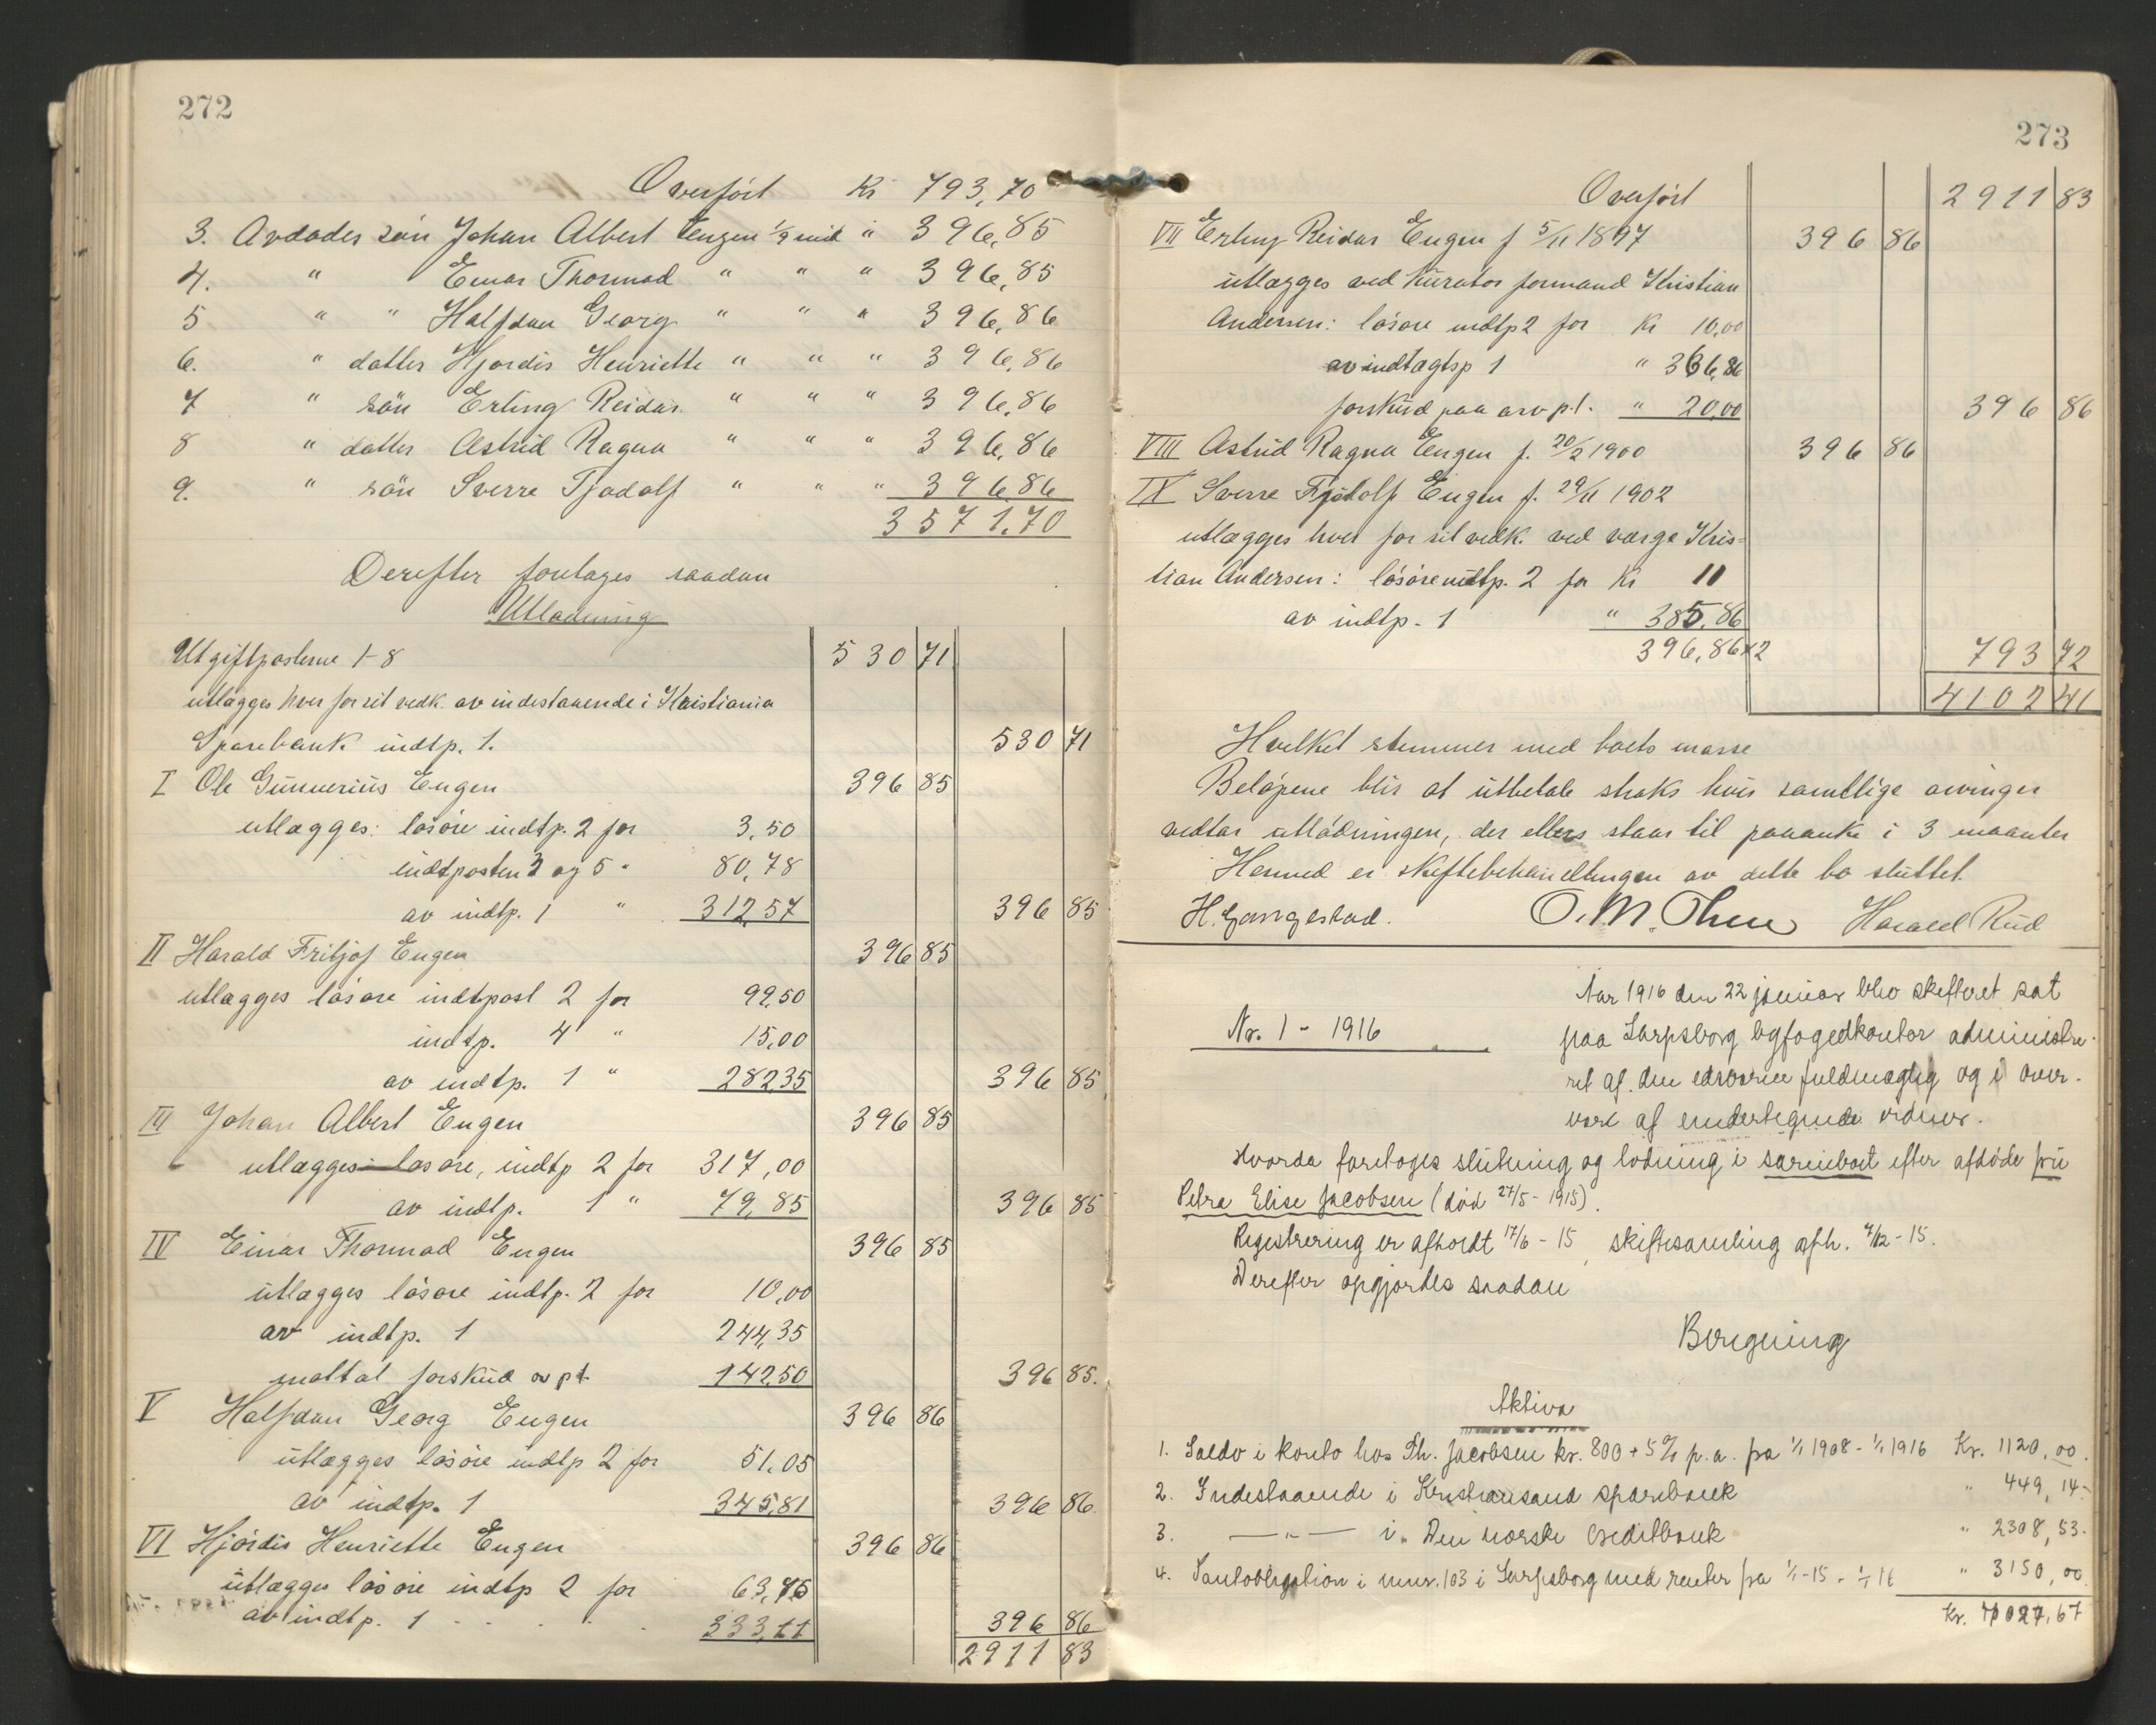 272
Overført Kr 793,70
3. Avdødes søn Johan Albert Engen 1/9 mit " 396,85
4. " Einar Thormod " " " 396,85
5 " " Halfdan Georg " " " 396,86
6. " datter Hjørdis Henriette " " " 396,86
7 " søn Erling Reidar " " " 396,86
8 " datter Astrid Ragna " " " 396,86
9. " søn Sverre Tjodolf " " " 396,86
3571,70
Derefter foretages saadan
Utlodning
Utgiftposterne 1-8 530 71
utlægges hver for sit vedk. av indestaaende i Kristiania
Sparebank indtp. 1. 530 71
I Ole Gunnerius Engen 396 85
utlægges: løsøre indtp. 2 for 3,50
indtposten 3 og 5 " 80,78
av indtp. 1 " 312,57 396 85
II Harald Fritjof Engen 396 85
utlægges løsøre indtpost 2 for 99,50
indtp. 4 " 15,00
av indtp. 1 " 282,35 396 85
III Johan Albert Engen 396 85
utlægges løsøre, indtp 2 for 317,00
av indtp. 1 " 79,85 396 85
IV Einar Thormod Engen 396 85
utlægges løsøre indtp. 2 for 10,00
av indtp. 1 244,35
mottat forskud 142,50 396 85.
V Halfdan Georg Engen 396 86
utlægges løsøre indtp 2 for 51,05
av indtp. 1 345,81 396 86
VI Hjørdis Henriette Engen 396 86
utlægges løsøre indtp 2 for 63,75
av indtp. 1 333,11 396 86
2911 83
273
Overført 2911 83
VII Erling Reidar Engen f 5/11 1897 396 86
utlægges ved kurator formand Kristian
Andersen: løsøre indtp 2 for Kr 10,00
av indtægtsp 1 " 366,86
forskud paa arv p.t. " 20,00 396 86
VIII Astrid Ragna Engen f. 20/2 1900 396 86
IX Sverre Tjodolf Engen f. 29/11 1902
utlægges hver for sit vedk. ved værge Kris-
tian Andersen: løsøre indtp. 2 for Kr 11
av indtp. 1 " 385,86
396,86 x 2 793 72
4102 41
Hvilket stemmer med boets masse
Beløpene blir at utbetale straks hvis samtlige arvinger
vedtar utlodningen, der ellers staar til paaanke i 3 maaneder
Hermed er skiftebehandlingen av dette bo sluttet.
H. Gangestad. O. M. Thue Harald Rud
Nr. 1 - 1916
Aar 1916 den 22 januar blev skifteret sat
paa Sarpsborg byfogedkontor administre-
ret af den edsvorne fuldmægtig og i over-
vær af undertegnede vidner.
Hvorda foretoges slutning og lodning i særeieboet efter afdøde fru
Petra Elise Jacobsen (død 27/5 - 1915).
Registrering er afholdt 17/6 - 15, skiftesamling afh. 7/12 - 15.
Derefter opgjordes saadan
Beregning
Aktiva
1. Saldo i konto hos Th. Jacobsen kr. 800 + 5% p.a. fra 1/1 1908 - 1/1 1916 Kr. 1120,00.
2. Indestaaende i Kristiansand sparebank " 449,14-
3. — " — i Den norske Creditbank " 2308,53-
4. Pantobligation i mnr. 103 i Sarpsborg med renter fra 1/1-15 - 1/1 16 " 3150,00
Kr. 7027,67